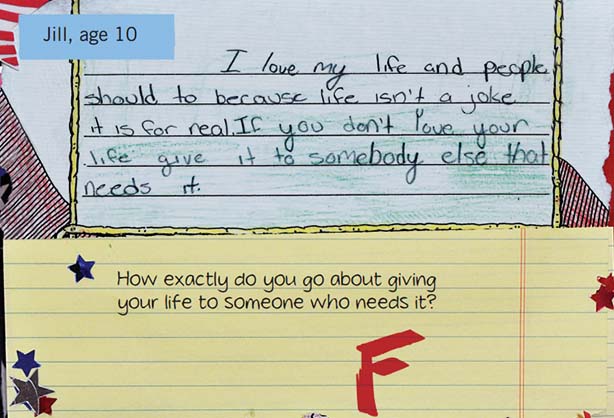 Jill, age 10
I love my life and people
should to because life isn't a joke
it is for real. If you don't love your
life give it to somebody else that
needs it.
How exactly do you go about giving
your life to someone who needs it?
F